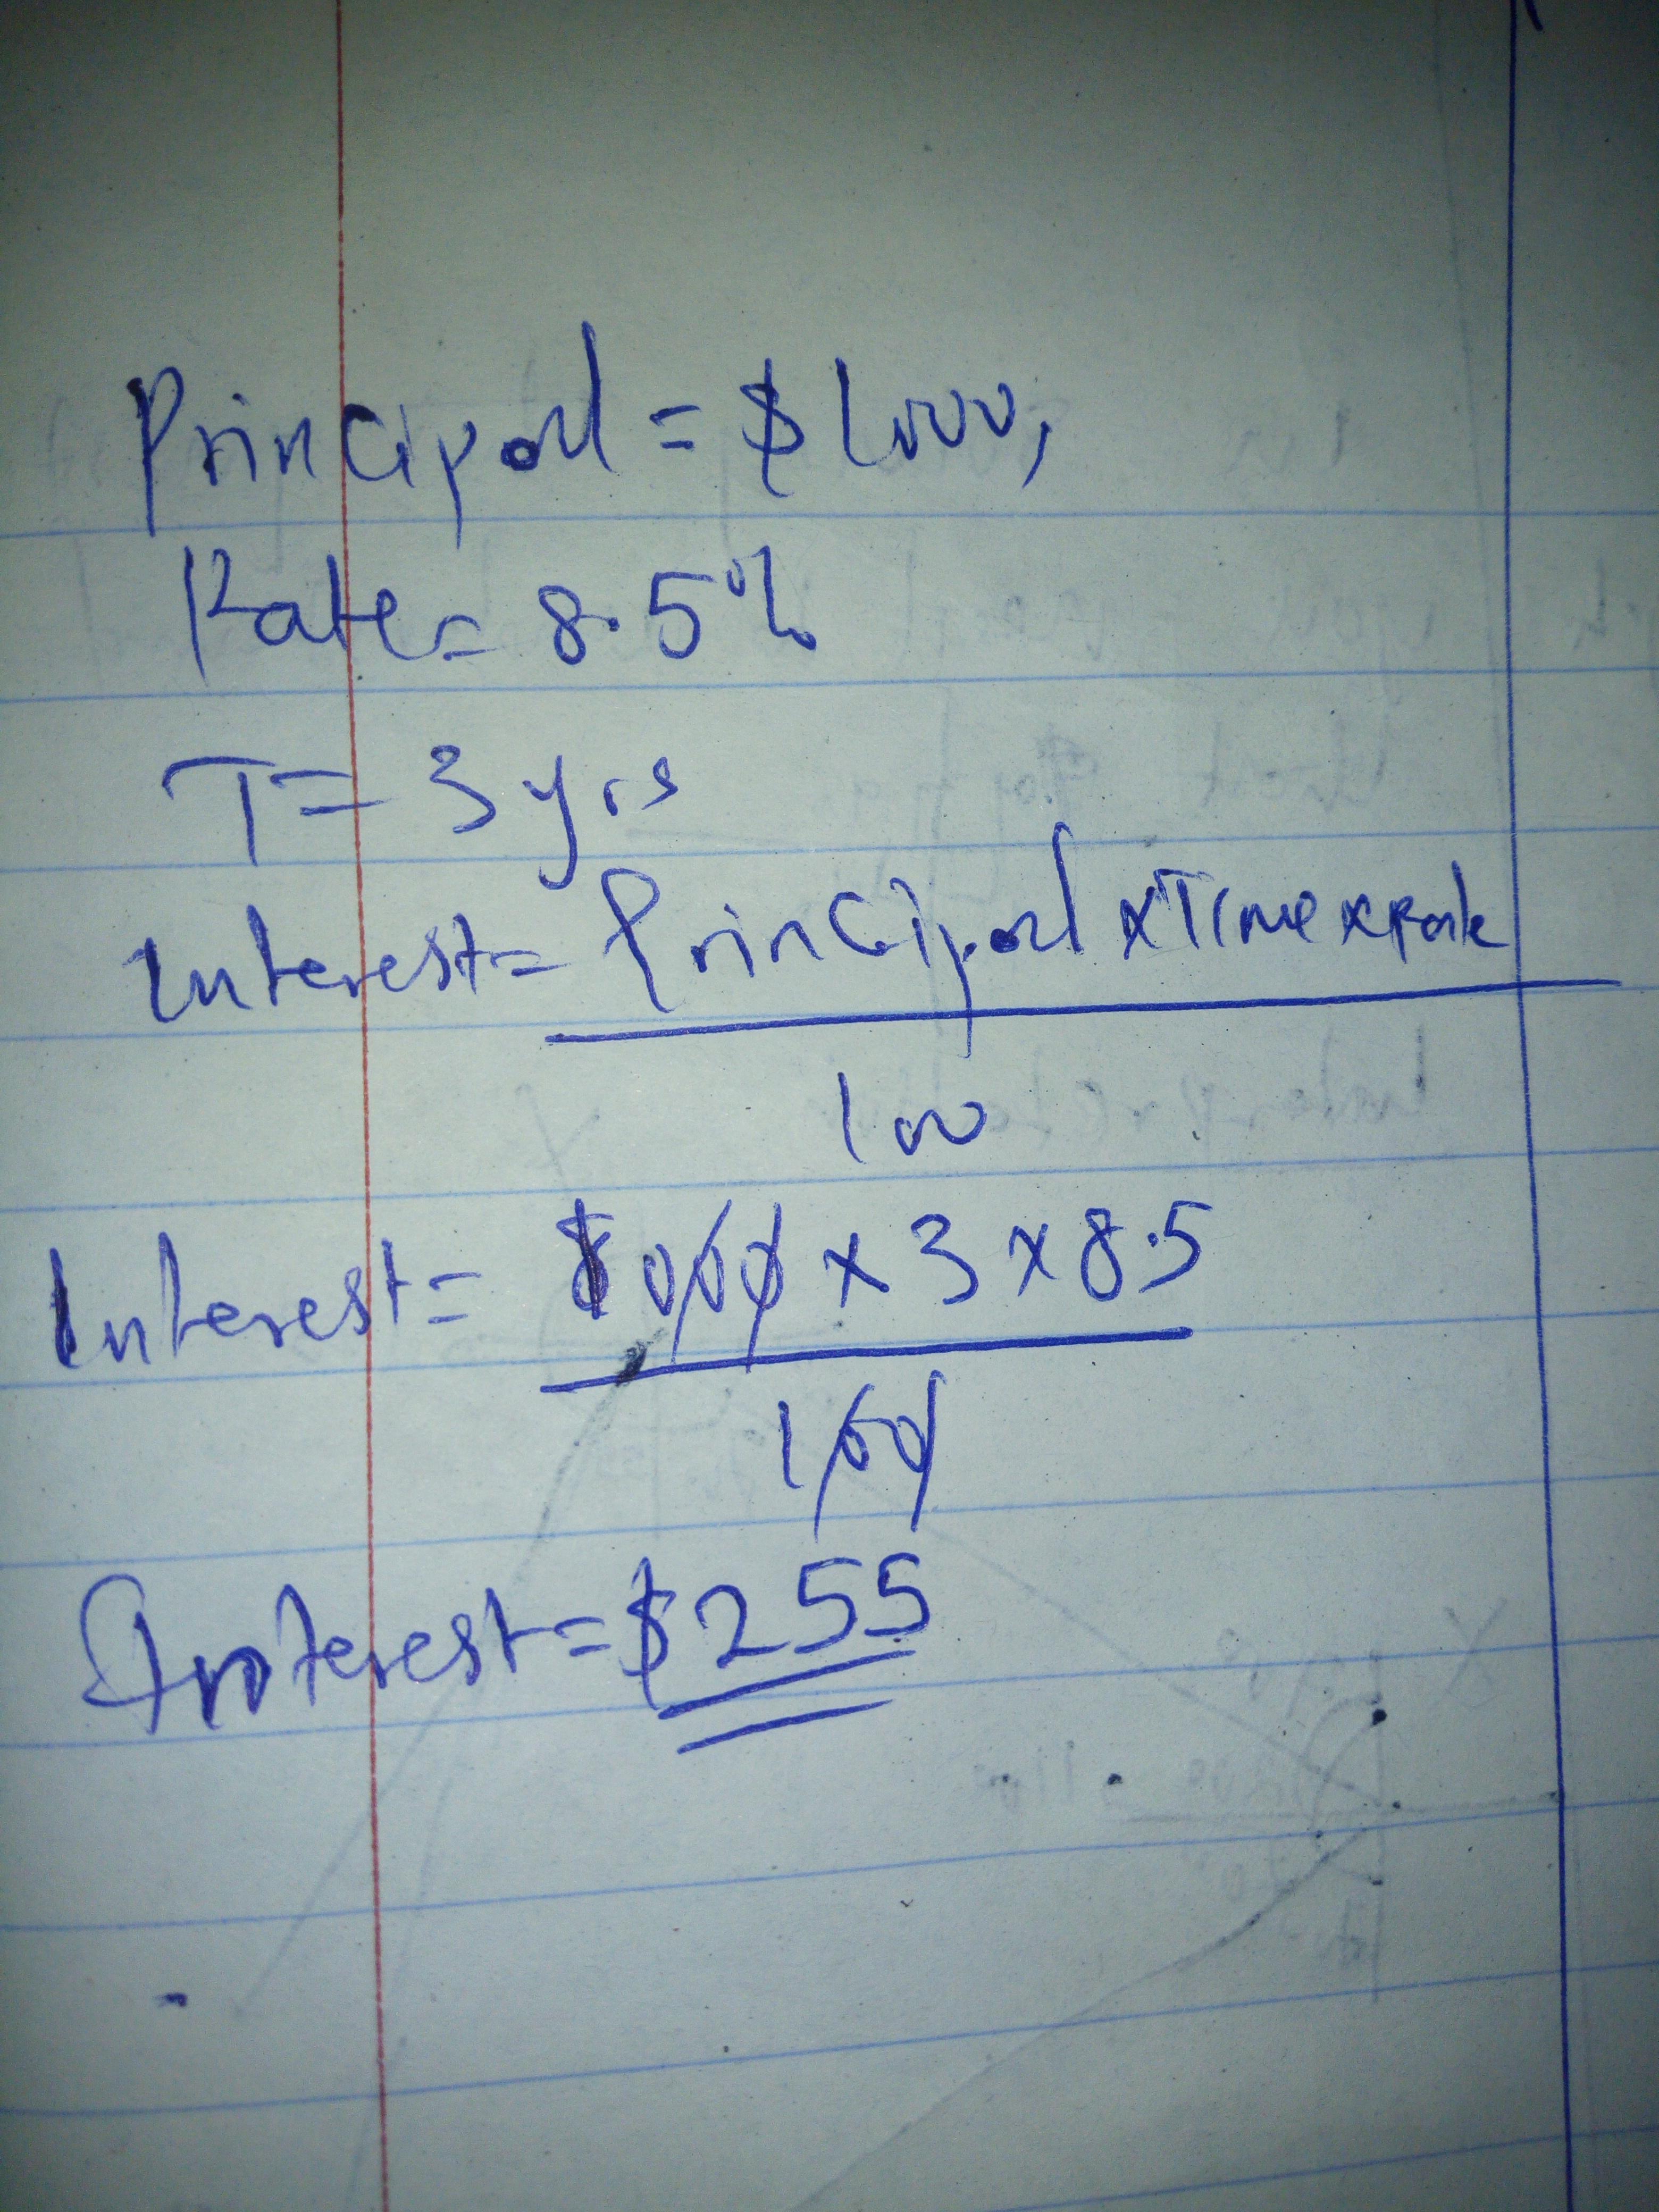 Principal = $1000,
Rate = 8.5%
T = 3 yrs
Interest = Principal x Time x Rate
100
Interest = 1000 x 3 x 8.5
100
Interest = $255